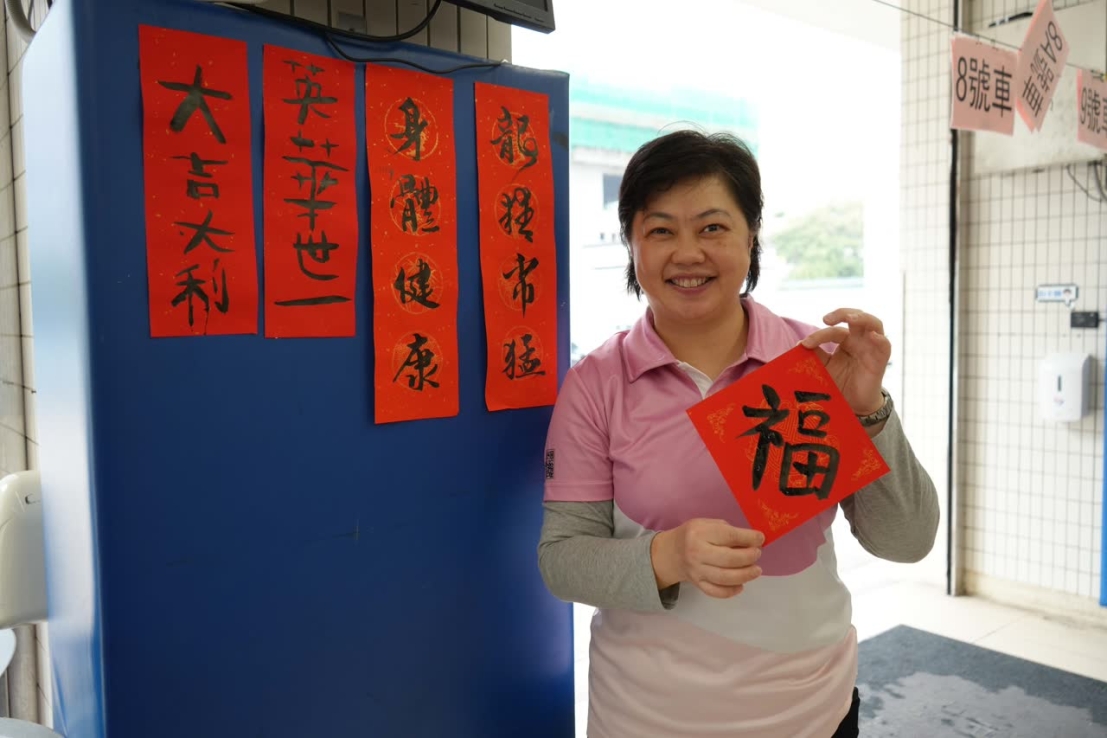 大吉大利
英華世一
身體健康
龍精虎猛
福
8號車
8A號車
9號車